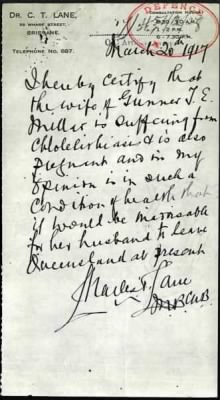 DR. C. T. LANE,
BRISBANE.
TELEPHONE NO. 887.
DEFENCE
March 20th 1917
I hereby certify that
the wife of Gunner T. E.
Miller is suffering from
& is also
pregnant and in my
opinion is in such a
condition of health that
it would be
for her husband to leave
Queensland at present
Charles T. Lane